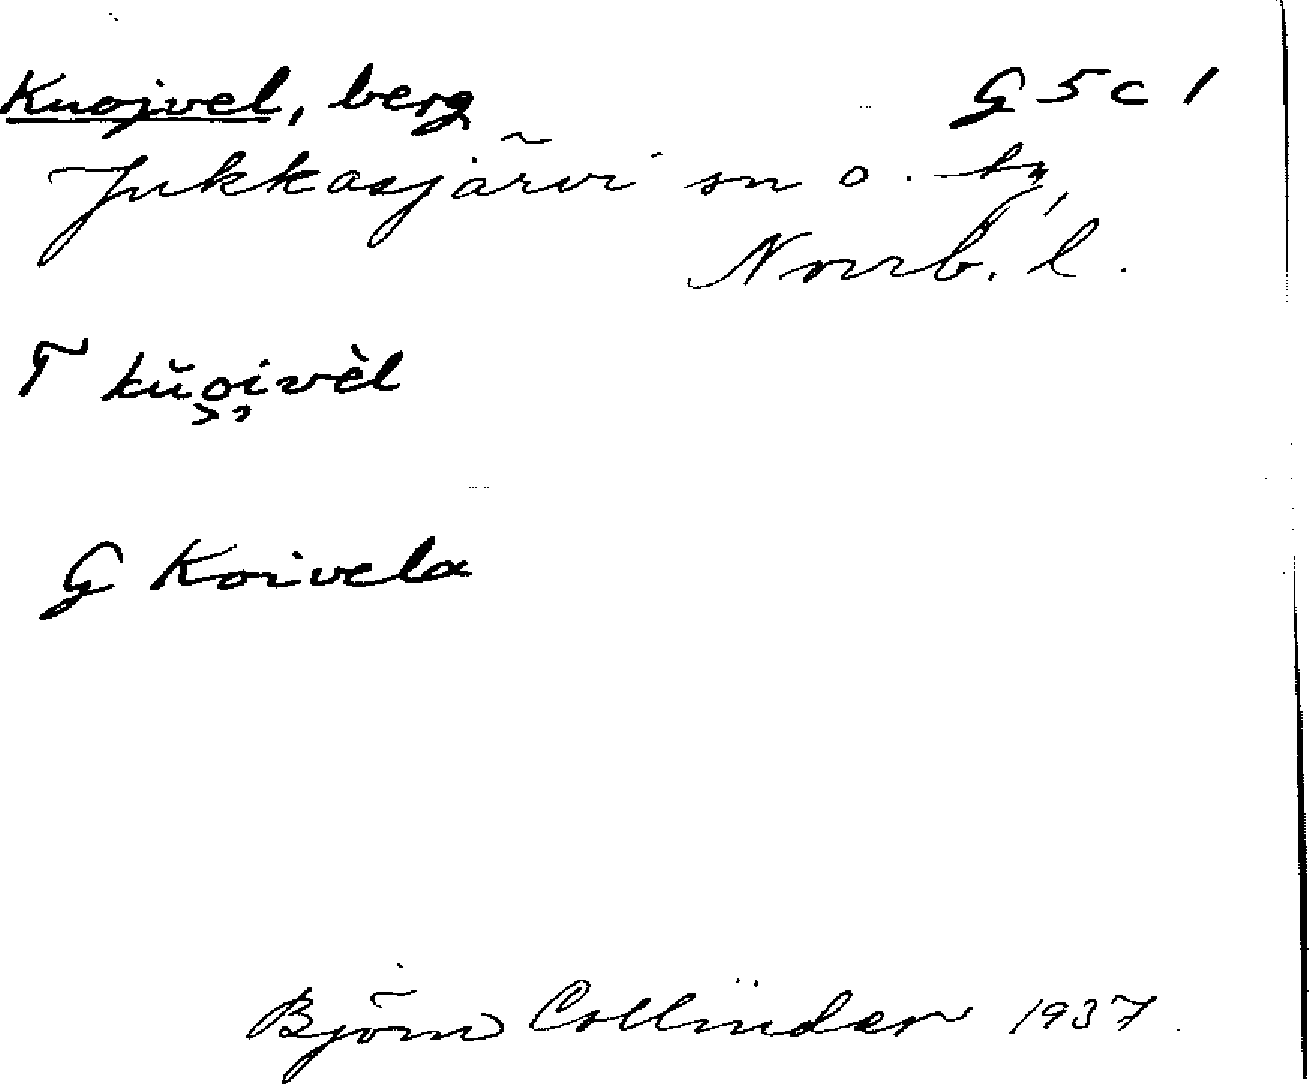 Kuojvel, berg G 5 c 1
Jukkasjärvi sn o. tg,
Norrb. l.
T kŭo̬i̬vèl
G Koivela
Björn Collinder 1937